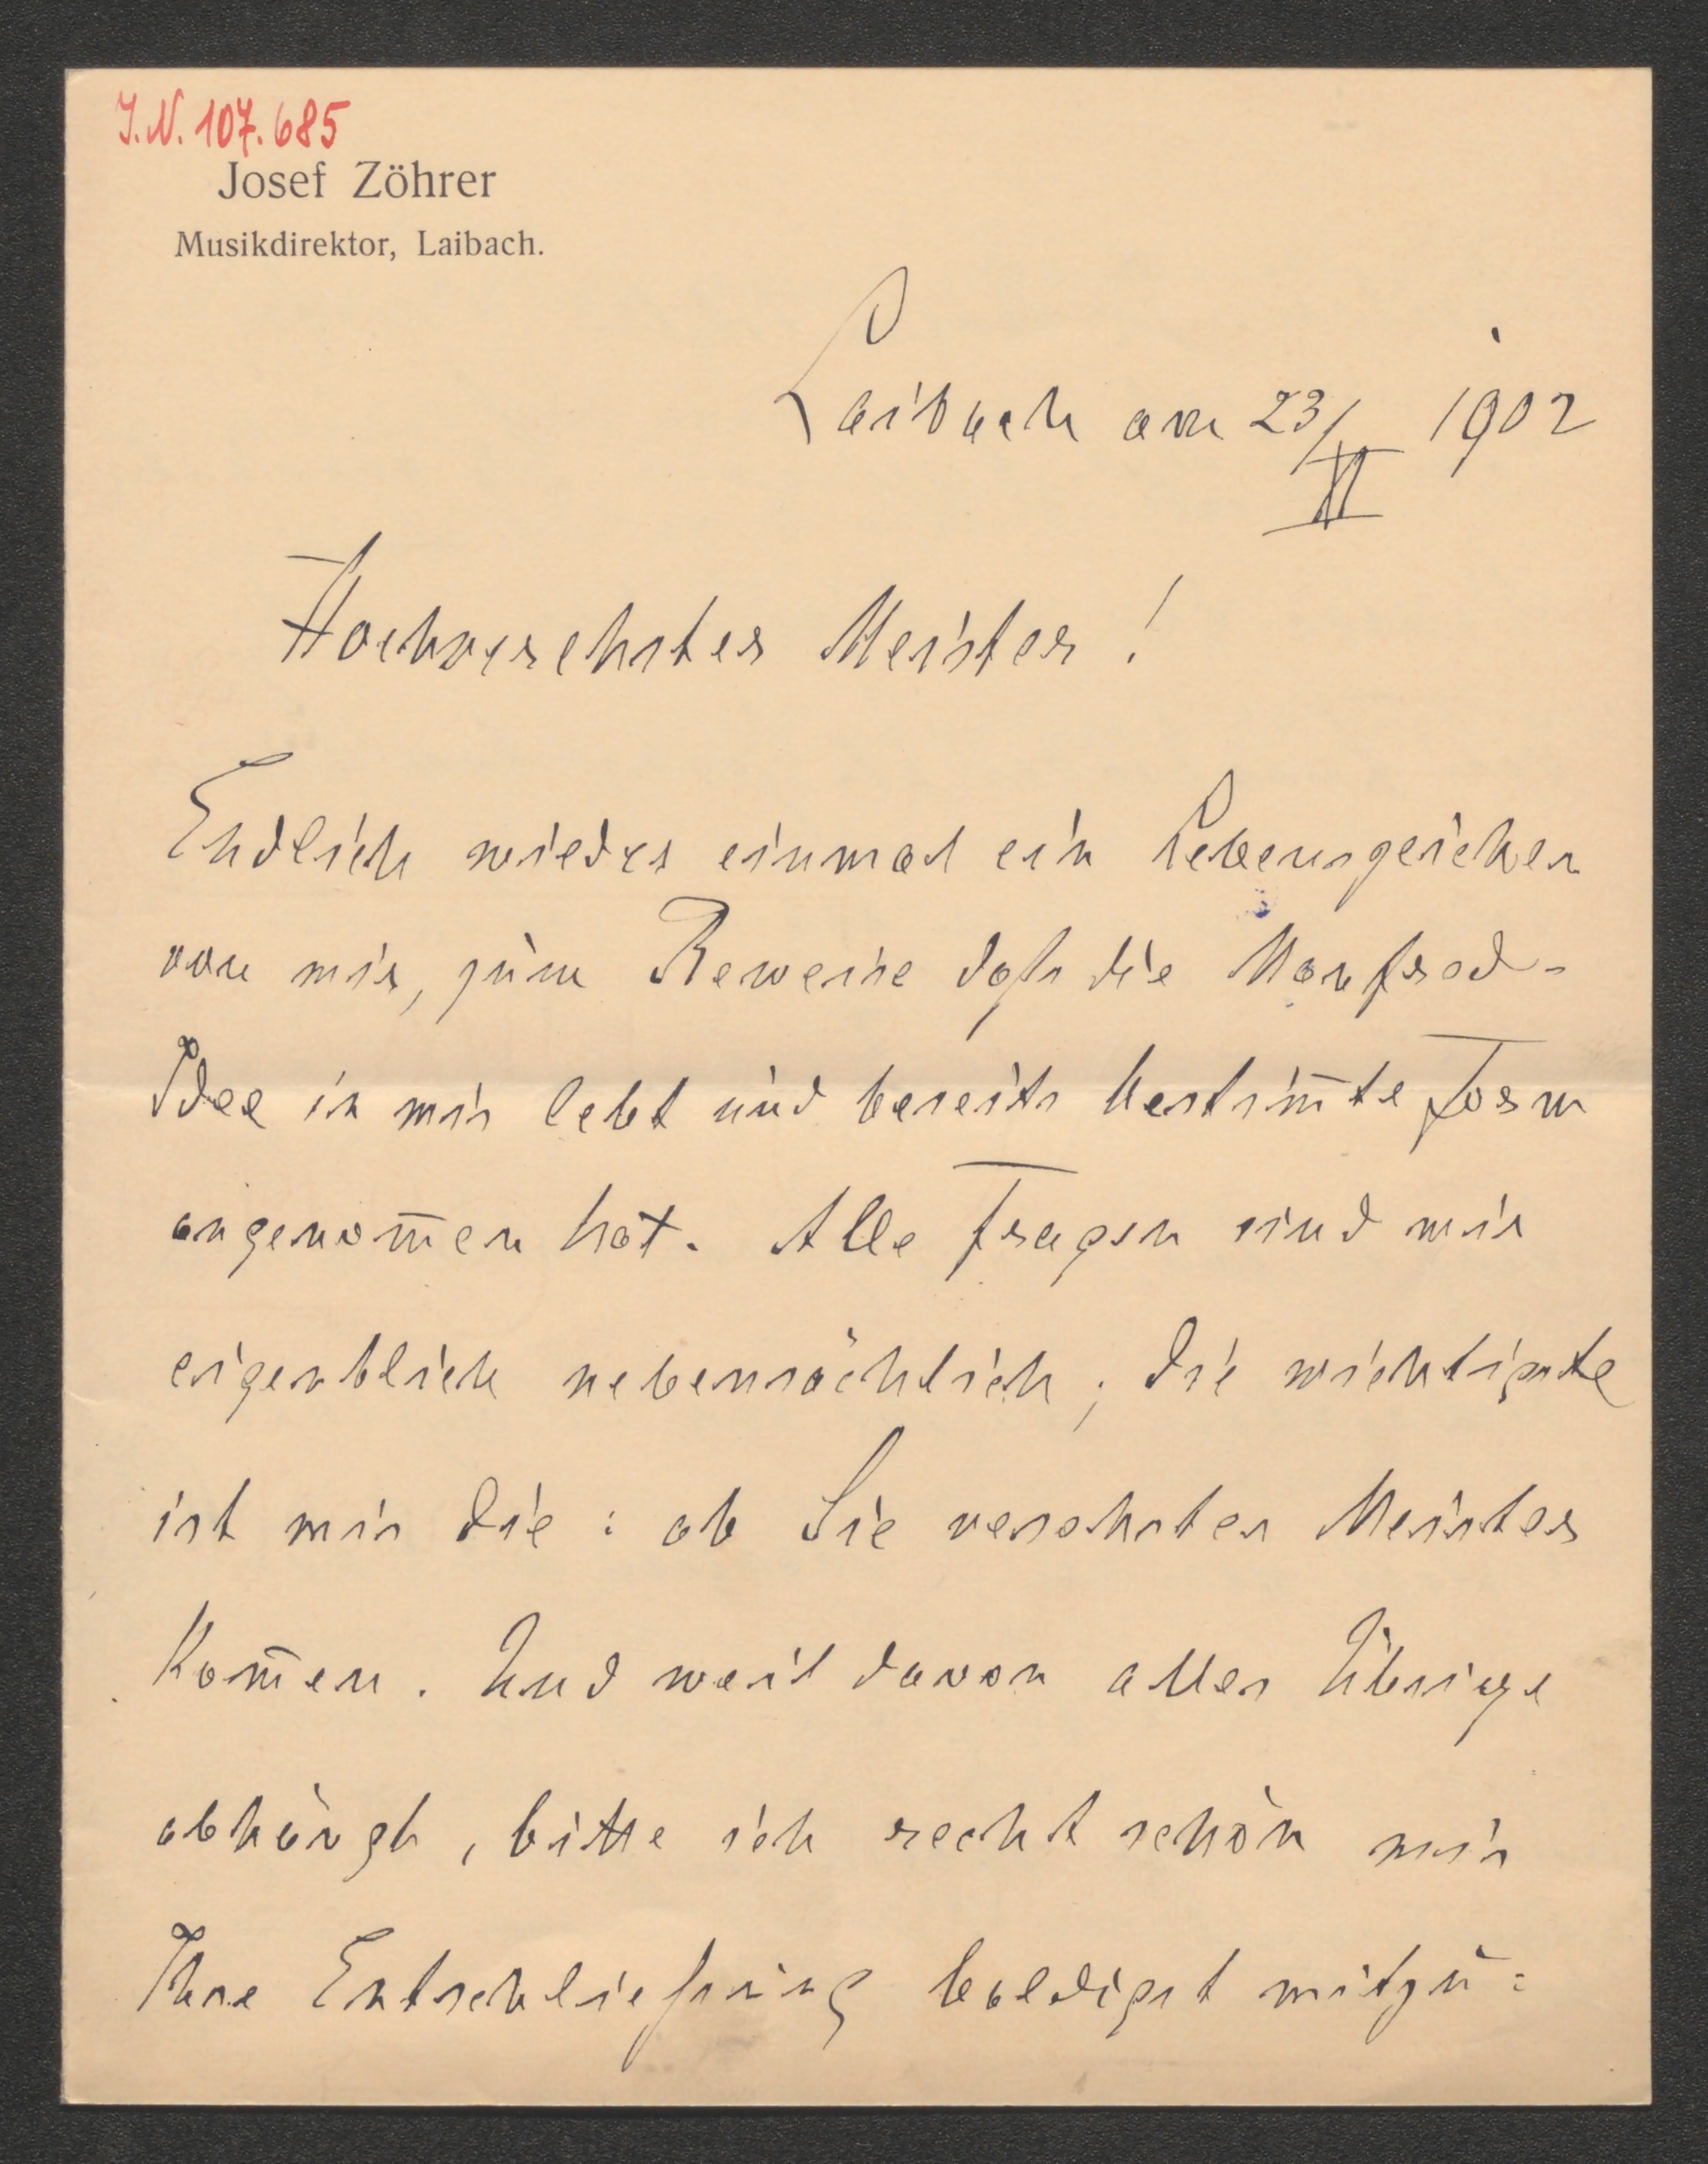 J.N. 107.685
Josef Zöhrer
Musikdirektor, Laibach.
Laibach am 23/II 1902
Hochverehrter Meister!
Endlich wieder einmal ein Lebenszeichen
von mir, zum Beweise daſs die Manfred-
Idee in mir lebt und bereits bestim̄te Form
angenom̄en hat. Alle Fragen sind mir
eigentlich nebensächlich; die wichtigste
ist mir die: ob Sie verehrter Meister
kom̄en. Und weil davon alles Übrige
abhängt, bitte ich recht schön mir
Ihre Entschlieſsung baldigst mitzu=